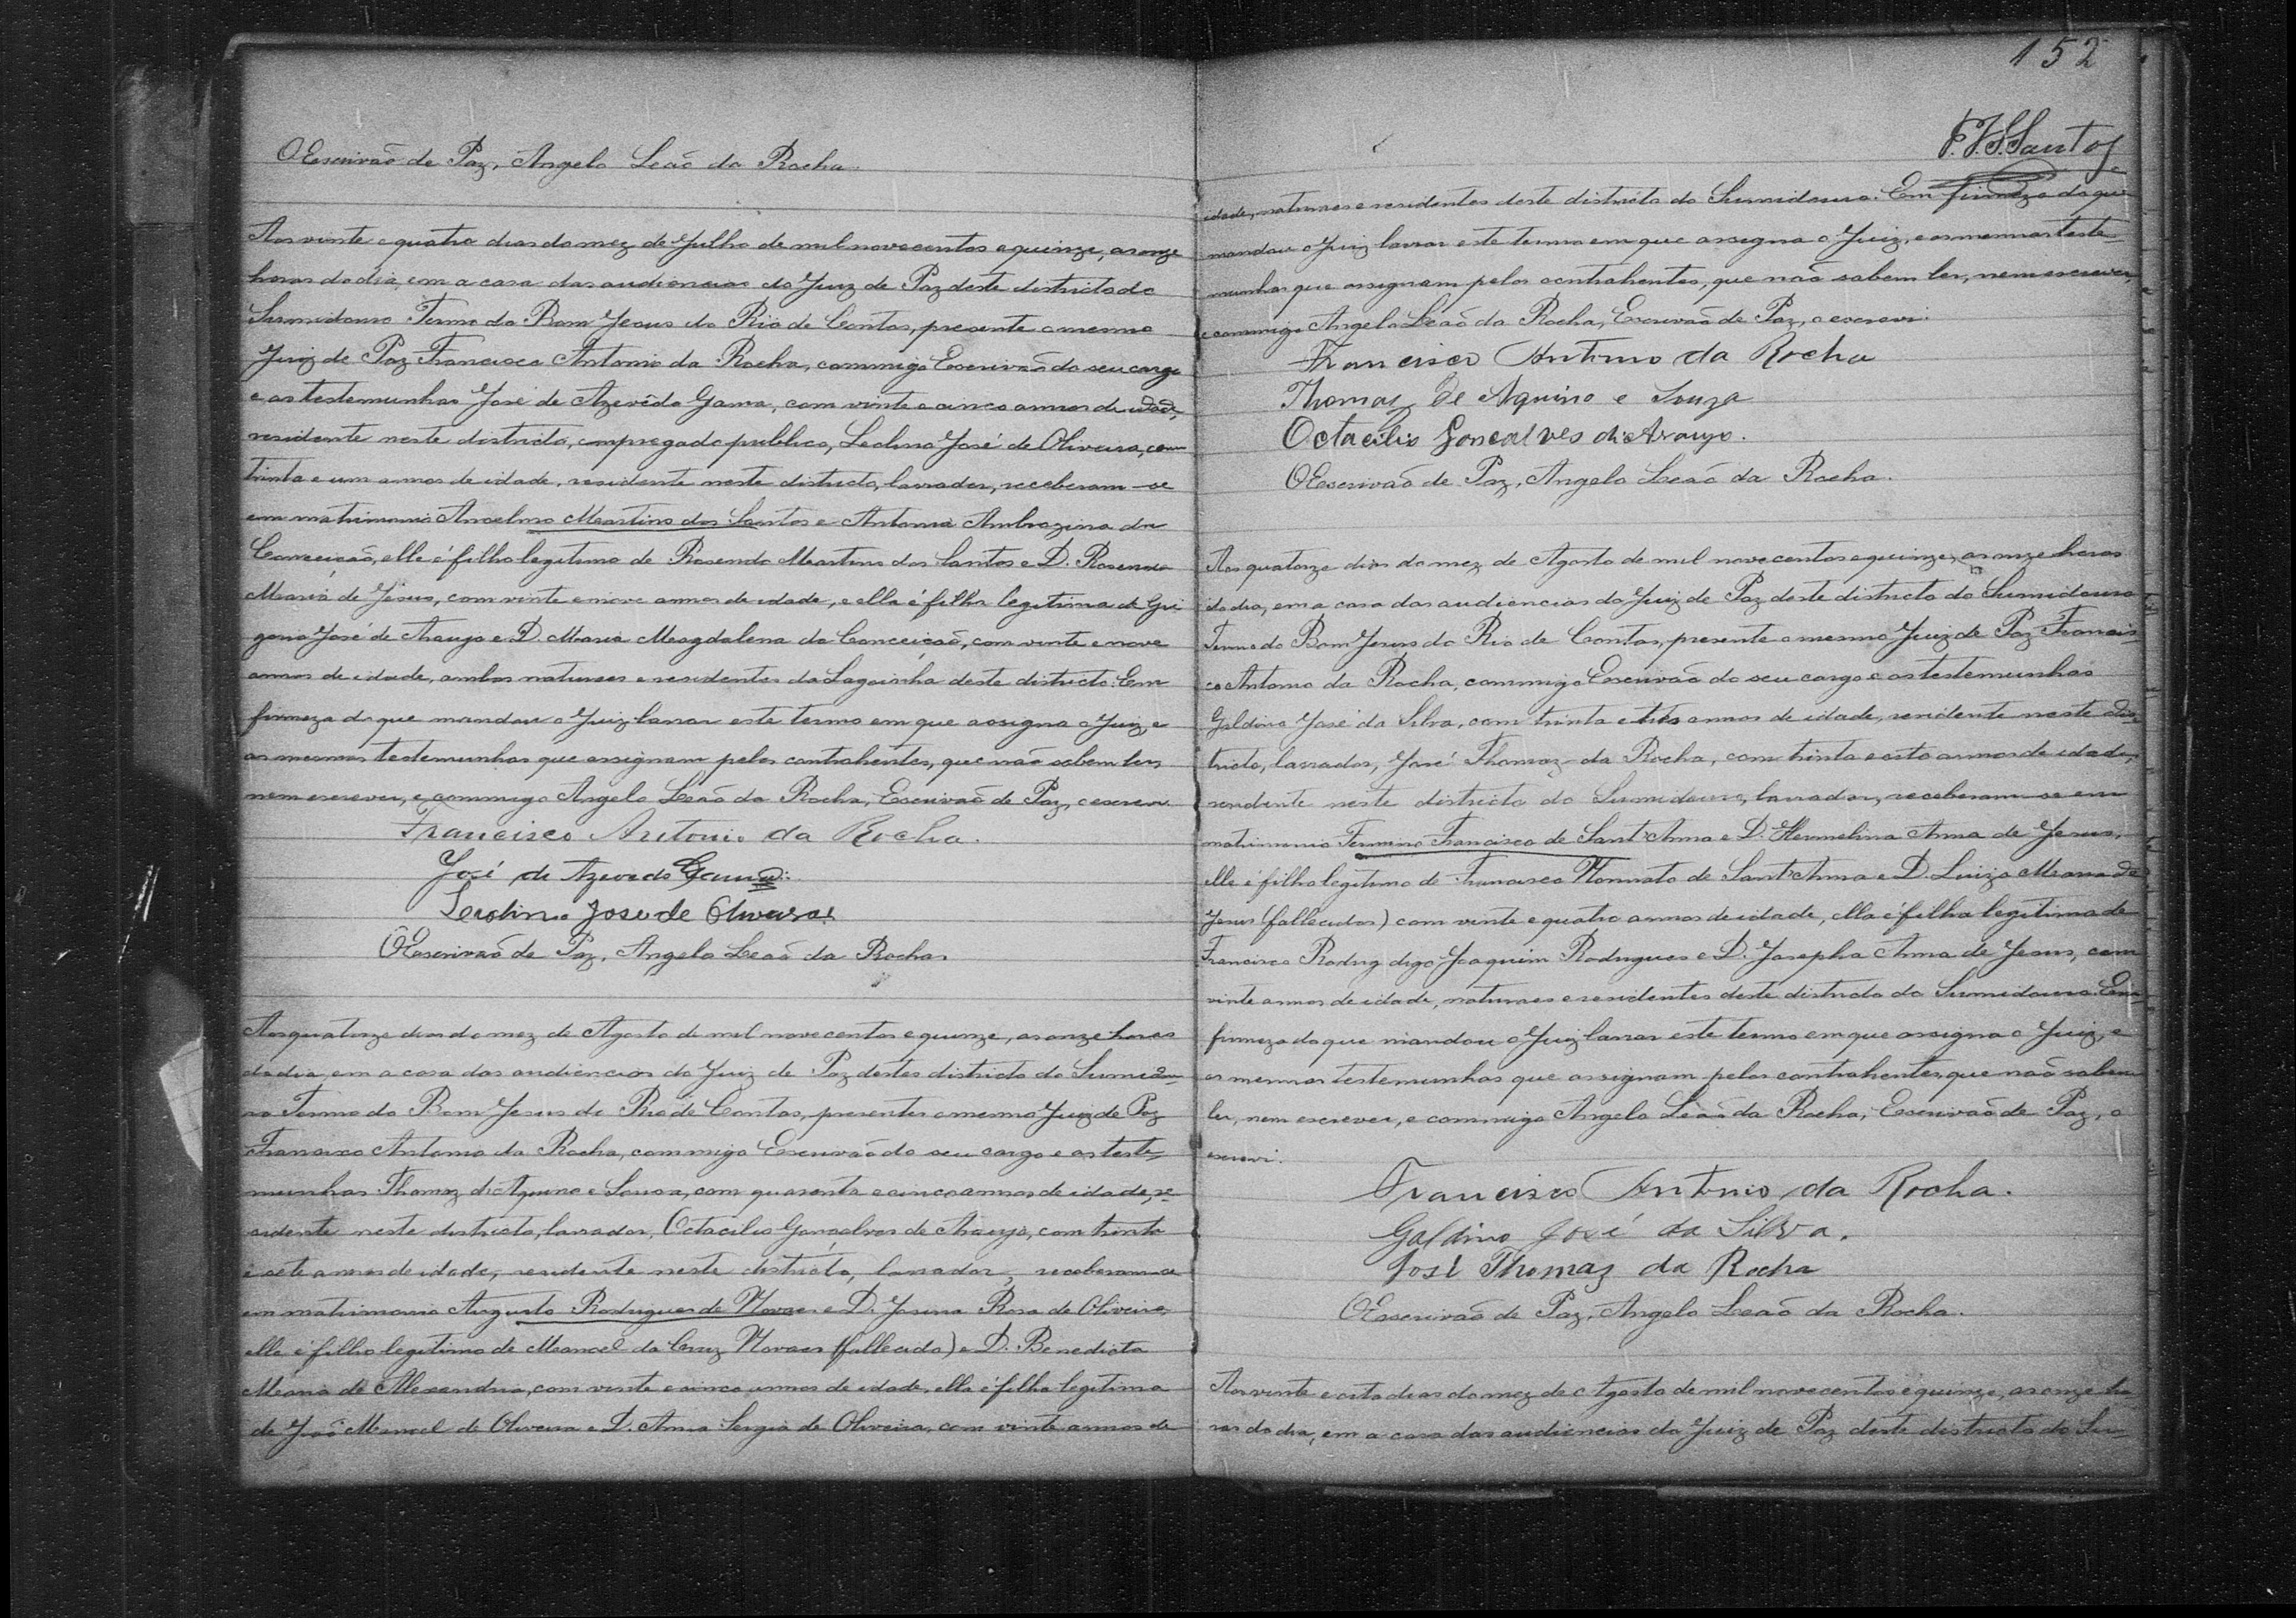 O Escrivaõ de Paz, Angelo Leaõ da Rocha.
Aos vinte e quatro dias do mez de Julho de mil novecentos e quinze, as onze
horas do dia, em a casa das audiencias do Juiz de Paz deste districto do
Sumidouro Termo do Bom Jesus do Rio de Contas, presente o mesmo
Juiz de Paz Francisco Antonio da Rocha, commigo Escrivaõ do seu cargo
e as testemunhas José de Azevêdo Gama, com vinte e cinco annos de idade,
residente neste districto, empregado publico, Leolino José de Oliveira, com
trinta e um annos de idade, residente neste districto, lavrador, receberam-se
em matrimonio Anselmo Martins dos Santos e Antonia Ambrozina da
Conceiçaõ, elle é filho legitimo de Rosendo Martins dos Santos e D. Rosenda
Maria de Jesus, com vinte e nove annos de idade, e ella é filha legitima de Gri
gorio José de Araujo e D. Maria Magdalena da Conceiçaõ, com vinte e nove
annos de idade, ambos naturaes e residentes da Lagoinha deste districto. Em
firmeza do que mandou o Juiz lavrar este termo em que assigna o Juiz, e
as mesmas testemunhas que assignam pelos contrahentes, que naõ sabem ler,
nem escrever, e commigo Angelo Leaõ da Rocha, Escrivaõ de Paz, o escrevi.
Francisco Antonio da Rocha.
José de Azevedo Gama
Leolino Jose de Oliveira
O Escrivaõ de Paz, Angelo Leaõ da Rocha.
Aos quatorze dias do mez de Agosto de mil novecentos e quinze, as onze horas
do dia, em a casa das audiencias do Juiz de Paz destes districto do Sumidou-
ro Termo do Bom Jesus do Rio de Contas, presentes o mesmo Juiz de Paz
Francisco Antonio da Rocha, commigo Escrivaõ do seu cargo e as teste-
munhas Thomaz de Aquino e Sousa, com quarenta e cinco annos de idade, re-
sidente neste districto, lavrador, Octacilio Gonçalves de Araujo, com trinta
e sete annos de idade, residente neste districto, lavrador, receberam-se
em matrimonio Augusto Rodrigues de Novaes e D. Josina Rosa de Oliveira,
elle é filho legitimo de Manoel da Cruz Novaes (fallecido) e D. Benedicta
Maria de Alexandria, com vinte e cinco annos de idade, ella é filha legitima
de Joaõ Manoel de Oliveira e D. Anna Sergia de Oliveira, com vinte annos de
152
F. J. S. Santos
idade, naturaes e residentes deste districto do Sumidouro. Em firmeza do que
mandou o Juiz lavrar este termo em que assigna o Juiz, e as mesmas teste-
munhas que assignam pelos contrahentes, que naõ sabem ler, nem escrever,
e commigo Angelo Leaõ da Rocha, Escrivaõ de Paz, o escrevi.
Francisco Antonio da Rocha
Thomaz de Aquino e Souza
Octacilio Gonçalves de Araujo.
O Escrivaõ de Paz, Angelo Leaõ da Rocha.
Aos quatorze dias do mez de Agosto de mil novecentos e quinze, as onze horas
do dia, em a casa das audiencias do Juiz de Paz deste districto do Sumidouro
Termo do Bom Jesus do Rio de Contas, presente o mesmo Juiz de Paz Francis-
co Antonio da Rocha, commigo Escrivaõ do seu cargo e as testemunhas
Galdino José da Silva, com trinta e tres annos de idade, residente neste dis-
tricto, lavrador, José Thomaz da Rocha, com trinta e oito annos de idade,
residente neste districto do Sumidouro, lavrador, receberam-se em
matrimonio Firmino Francisco de Sant'Anna e D. Hermelina Anna de Jesus,
elle é filho legitimo de Francisco Honorato de Sant'Anna e D. Luiza Maria de
Jesus (fallecidos) com vinte e quatro annos de idade, ella é filha legitima de
Francisco Rodrig digo Joaquim Rodrigues e D. Josepha Anna de Jesus, com
vinte annos de idade, naturaes e residentes deste districto do Sumidouro. Em
firmeza do que mandou o Juiz lavrar este termo em que assigna o Juiz, e
as mesmas testemunhas que assignam pelos contrahentes, que naõ sabem
ler, nem escrever, e commigo Angelo Leaõ da Rocha, Escrivaõ de Paz, o
escrevi.
Francisco Antonio da Rocha.
Galdino José da Silva.
José Thomaz da Rocha
O Escrivaõ de Paz, Angelo Leaõ da Rocha.
Aos vinte e oito dias do mez de Agosto de mil novecentos e quinze, as onze ho-
ras do dia, em a casa das audiencias do Juiz de Paz deste districto do Su-